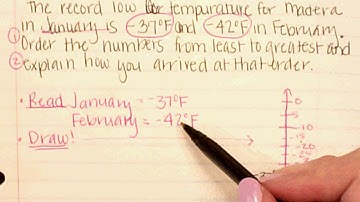 The record low for tempurature for madera
in January is -37°F and -42°F in February.
① Order the numbers from least to greatest and
② explain how you arrived at that order.
• Read January = -37°F
February = -42°F
• Draw!
0
-5
-10
-15
-20
-25